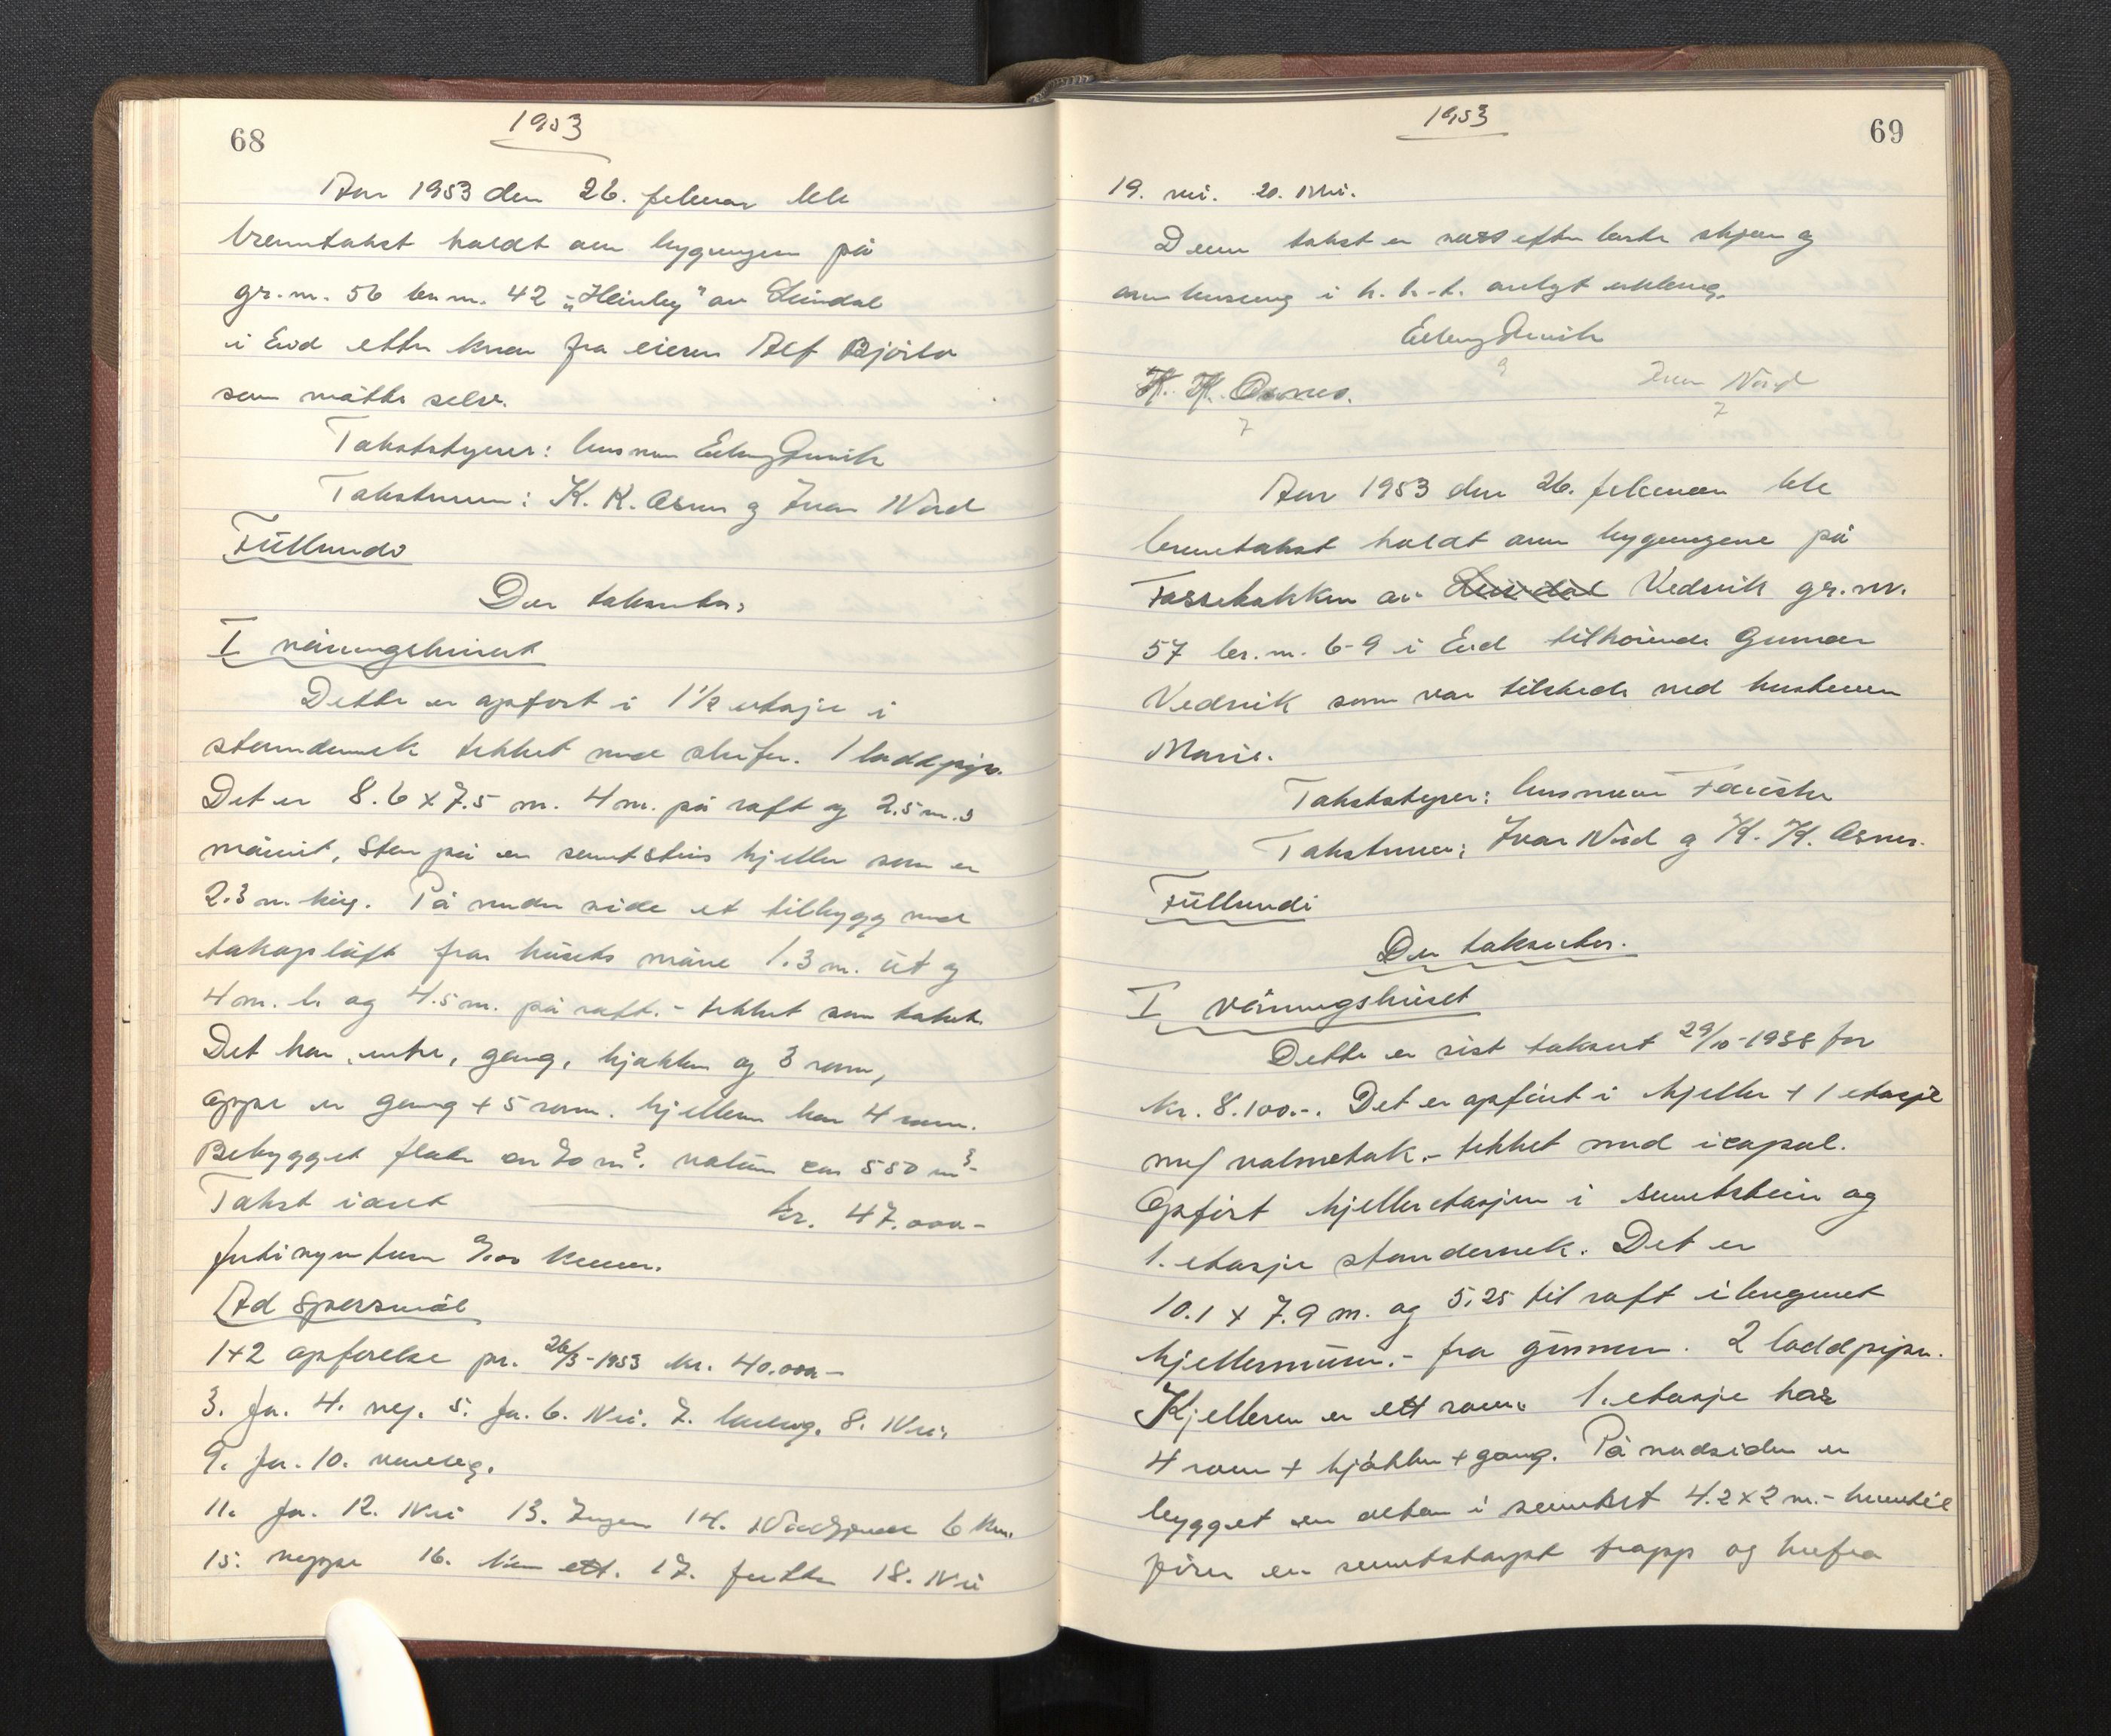 68
1953
Aar 1953 den 26. februar ble
branntakst holdt over bygningen på
gr.nr. 56 br.nr. 42 "Heimly" av Leirdal
i Eid etter krav fra eieren Alf Bjørlo
som møtte selv.
Takststyrer: lensmann Erling
Takstmenn: K. K. Osnes og Ivar Nord
Fullmndi
Der takseres:
I våningshuset
Dette er opført i 1 1/2 etasje i
stenderverk tekket med skifer. 1 loddpipe.
Det er 8.6 x 7.5 m. 4 m. på raft og 2.5 m. i
mønet, Står på en sementsteins kjeller som er
2.3 m. høy. På nordre side et tilbygg med
takopløft fra husets møne 1.3 m. ut og
4 m. b. og 4.5 m. på raft. - tekket som taket.
Det har entre, gang, kjøkken og 3 rom,
oppe er gang + 5 rom. kjelleren har 4 rom.
Bebygget flate ca 70 m². volum ca 550 m³-
Takst i alt kr. 47.000-
førti syv tusen 0/00 kroner.
Ad spørsmål
1+2 opførelse pr. 26/3-1953 kr. 40.000-
3. Ja. 4. nej. 5. Ja. 6. Nei. 7. 8. Nei.
9. Ja. 10.
11. Ja. 12. Nei 13. Ingen 14. Nordfjordeid 6 km.
15. neppe 16. ett. 17. 18. Nei
1953
69
19. nei. 20. Nei.
Denne takst er satt efter beste skjønn og
overbevisning i h. h. t. avlagt erklæring.
Erling
K. K. Osnes.
Ivar Nord
Aar 1953 den 26. februar ble
branntakst holdt over bygningene på
Fossebakken av Leirdal Vedvik gr.nr.
57 br.nr. 6-9 i Eid tilhørende Gunnar
Vedvik som var tilstede med hustruen
Marie.
Takststyrer: lensmann
Takstmenn: Ivar Nord og K. K. Osnes.
Fullmndi
Der takseres.
I våningshuset
Dette er sist taksert 29/10-1938 for
kr. 8.100.-. Det er opført i kjeller + 1 etasje
m/ valmetak. - tekket med icopal.
Opført kjelleretasjen i sementstein og
1. etasje stenderverk. Det er
10.1 x 7.9 m. og 5.25 til raft iberegnet
kjellermuren. - fra grunnen. 2 loddpiper.
Kjelleren er ett rom. 1. etasje har
4 rom + kjøkken + gang. På nordsiden er
bygget en altan i sement 4.2 x 2 m. - hvortil
fører en sementstøpt trapp og herfra